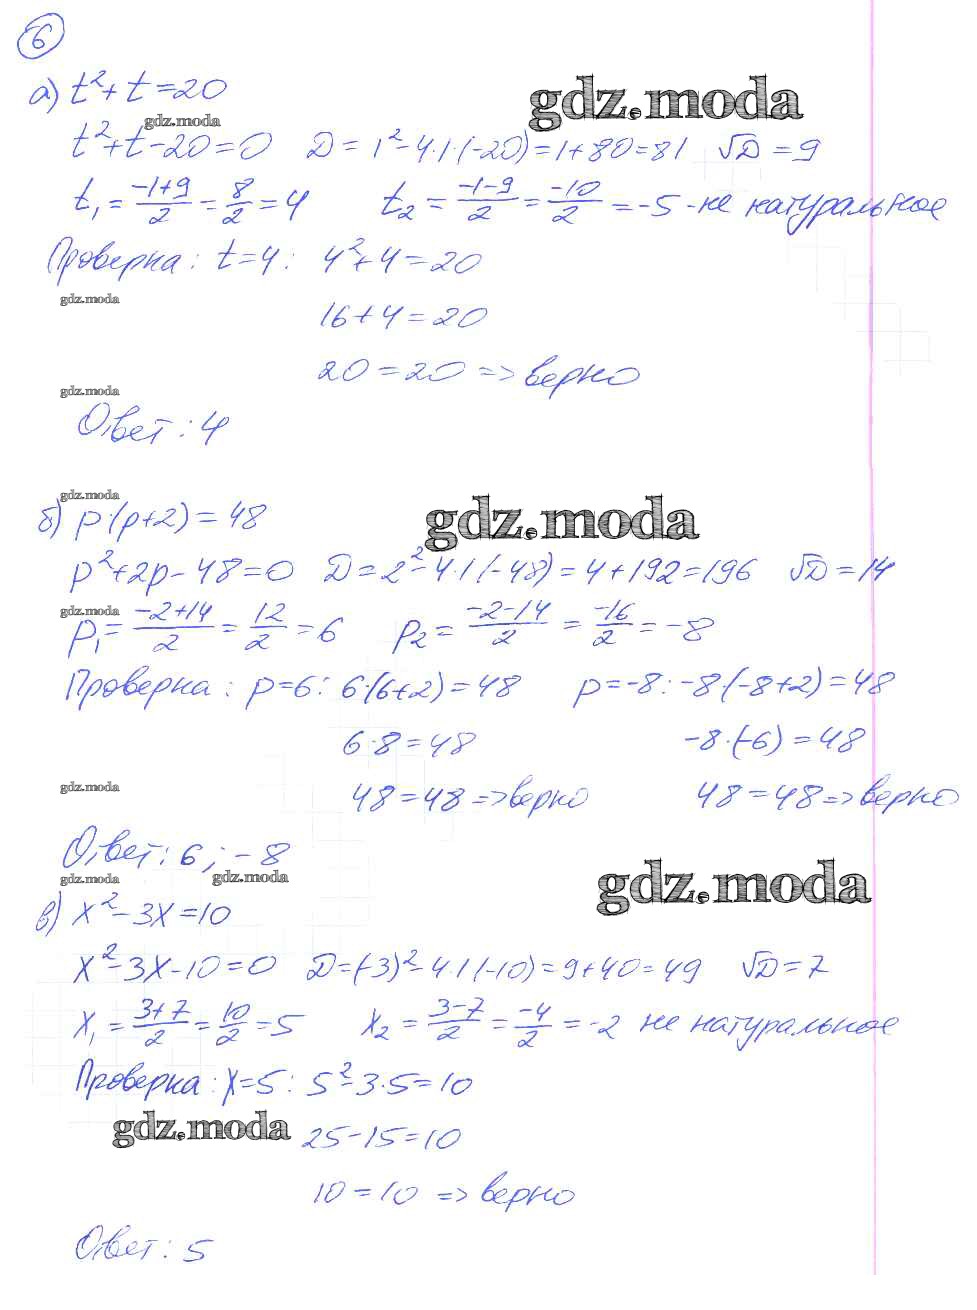 6
а) t²+t=20
gdz.moda
gdz.moda
t²+t-20=0 D=1²-4·1·(-20)=1+80=81 √D=9
t₁=(-1+9)/2=8/2=4 t₂=(-1-9)/2=-10/2=-5 - не натуральное
Проверка: t=4: 4²+4=20
gdz.moda
16+4=20
20=20 => верно
gdz.moda
Ответ: 4
gdz.moda
gdz.moda
б) p·(p+2)=48
p²+2p-48=0 D=2²-4·1(-48)=4+192=196 √D=14
gdz.moda
p₁=(-2+14)/2=12/2=6 p₂=(-2-14)/2=-16/2=-8
Проверка: p=6: 6·(6+2)=48 p=-8: -8·(-8+2)=48
6·8=48 -8·(-6)=48
gdz.moda
48=48=>верно 48=48=>верно
Ответ: 6; -8
gdz.moda
gdz.moda
gdz.moda
в) x²-3x=10
x²-3x-10=0 D=(-3)²-4·1(-10)=9+40=49 √D=7
x₁=(3+7)/2=10/2=5 x₂=(3-7)/2=-4/2=-2 не натуральное
Проверка: x=5: 5²-3·5=10
gdz.moda
25-15=10
10=10 => верно
Ответ: 5